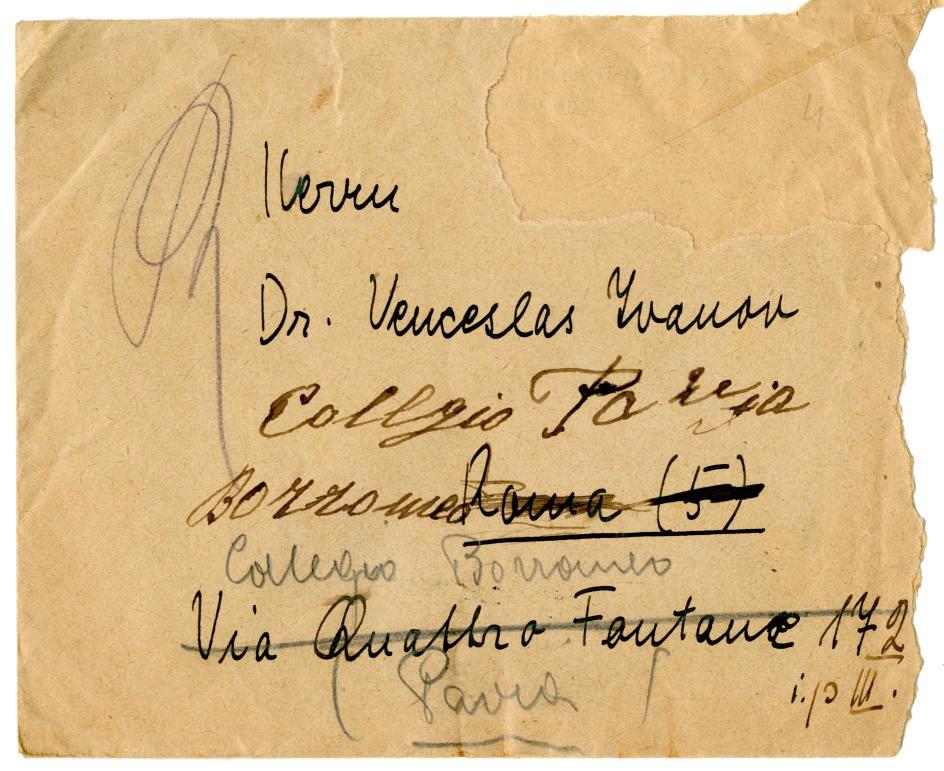 4
Herrn
Dr. Venceslas Ivanov
Collgio Pavia
Borromeo Roma (5)
Collegio Borromeo
Via Quattro Fontane 172
(Pavia)
i.p III.